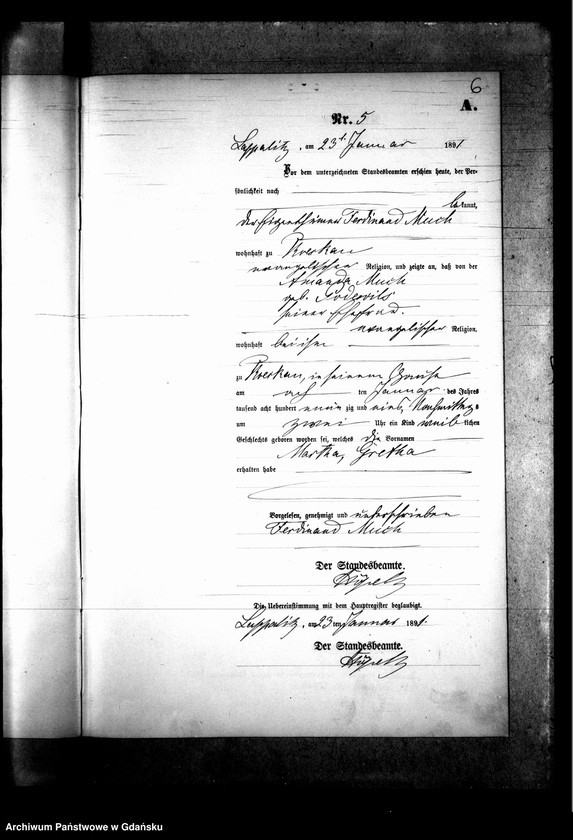 6
A.
Nr. 5
am 23t. Januar 1891
Vor dem unterzeichneten Standesbeamten erschien heute, der Per-
sönlichkeit nach
bekannt,
der Eigenthümer Ferdinand Much
wohnhaft zu
evangelischer Religion, und zeigte an, daß von der
Amanda Much
geb.
seiner Ehefrau
evangelischer Religion,
wohnhaft bei ihm
zu in seinem Hause
am ten Januar des Jahres
tausend acht hundert neun zig und eins, Nachmittags
um zwei Uhr ein Kind weiblichen
Geschlechts geboren worden sei, welches die Vornamen
Martha, Gretha
erhalten habe
Vorgelesen, genehmigt und unterschrieben
Ferdinand Much
Der Standesbeamte.
Die Uebereinstimmung mit dem Hauptregister beglaubigt.
am 23 ten Januar 1891.
Der Standesbeamte.
Archiwum Państwowe w Gdańsku